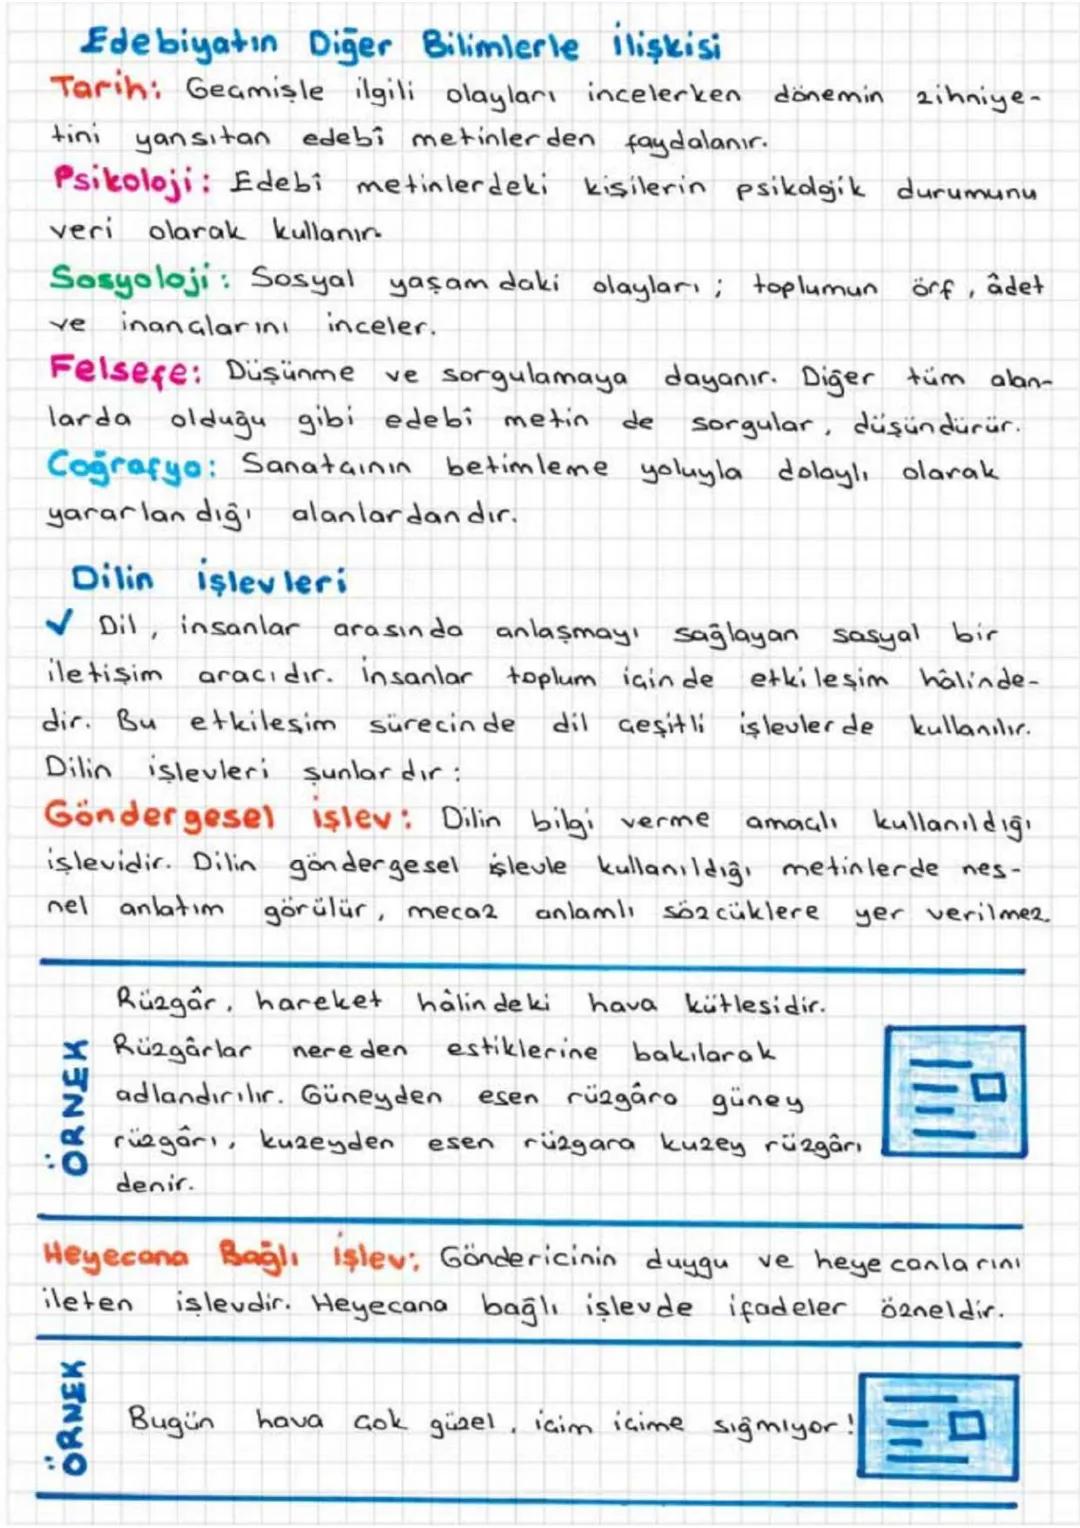 Edebiyatın Diğer Bilimlerle İlişkisi
Tarih: Geçmişle ilgili olayları incelerken dönemin zihniye-
tini yansıtan edebî metinlerden faydalanır.
Psikoloji: Edebî metinlerdeki kişilerin psikolojik durumunu
veri olarak kullanır.
Sosyoloji: Sosyal yaşamdaki olayları; toplumun örf, âdet
ve inançlarını inceler.
Felsefe: Düşünme ve sorgulamaya dayanır. Diğer tüm alan-
larda olduğu gibi edebî metin de sorgular, düşündürür.
Coğrafya: Sanatçının betimleme yoluyla dolaylı olarak
yararlandığı alanlardandır.
Dilin işlevleri
✓ Dil, insanlar arasında anlaşmayı sağlayan sosyal bir
iletişim aracıdır. İnsanlar toplum içinde etkileşim hâlinde-
dir. Bu etkileşim sürecinde dil çeşitli işlevlerde kullanılır.
Dilin işlevleri şunlardır:
Göndergesel işlev: Dilin bilgi verme amaçlı kullanıldığı
işlevidir. Dilin göndergesel işlevle kullanıldığı metinlerde nes-
nel anlatım görülür, mecaz anlamlı sözcüklere yer verilmez.
ÖRNEK
Rüzgâr, hareket hâlindeki hava kütlesidir.
Rüzgârlar nereden estiklerine bakılarak
adlandırılır. Güneyden esen rüzgâra güney
rüzgârı, kuzeyden esen rüzgara kuzey rüzgârı
denir.
Heyecana Bağlı İşlev: Göndericinin duygu ve heyecanlarını
ileten işlevdir. Heyecana bağlı işlevde ifadeler özneldir.
ÖRNEK
Bugün hava çok güzel, içim içime sığmıyor!